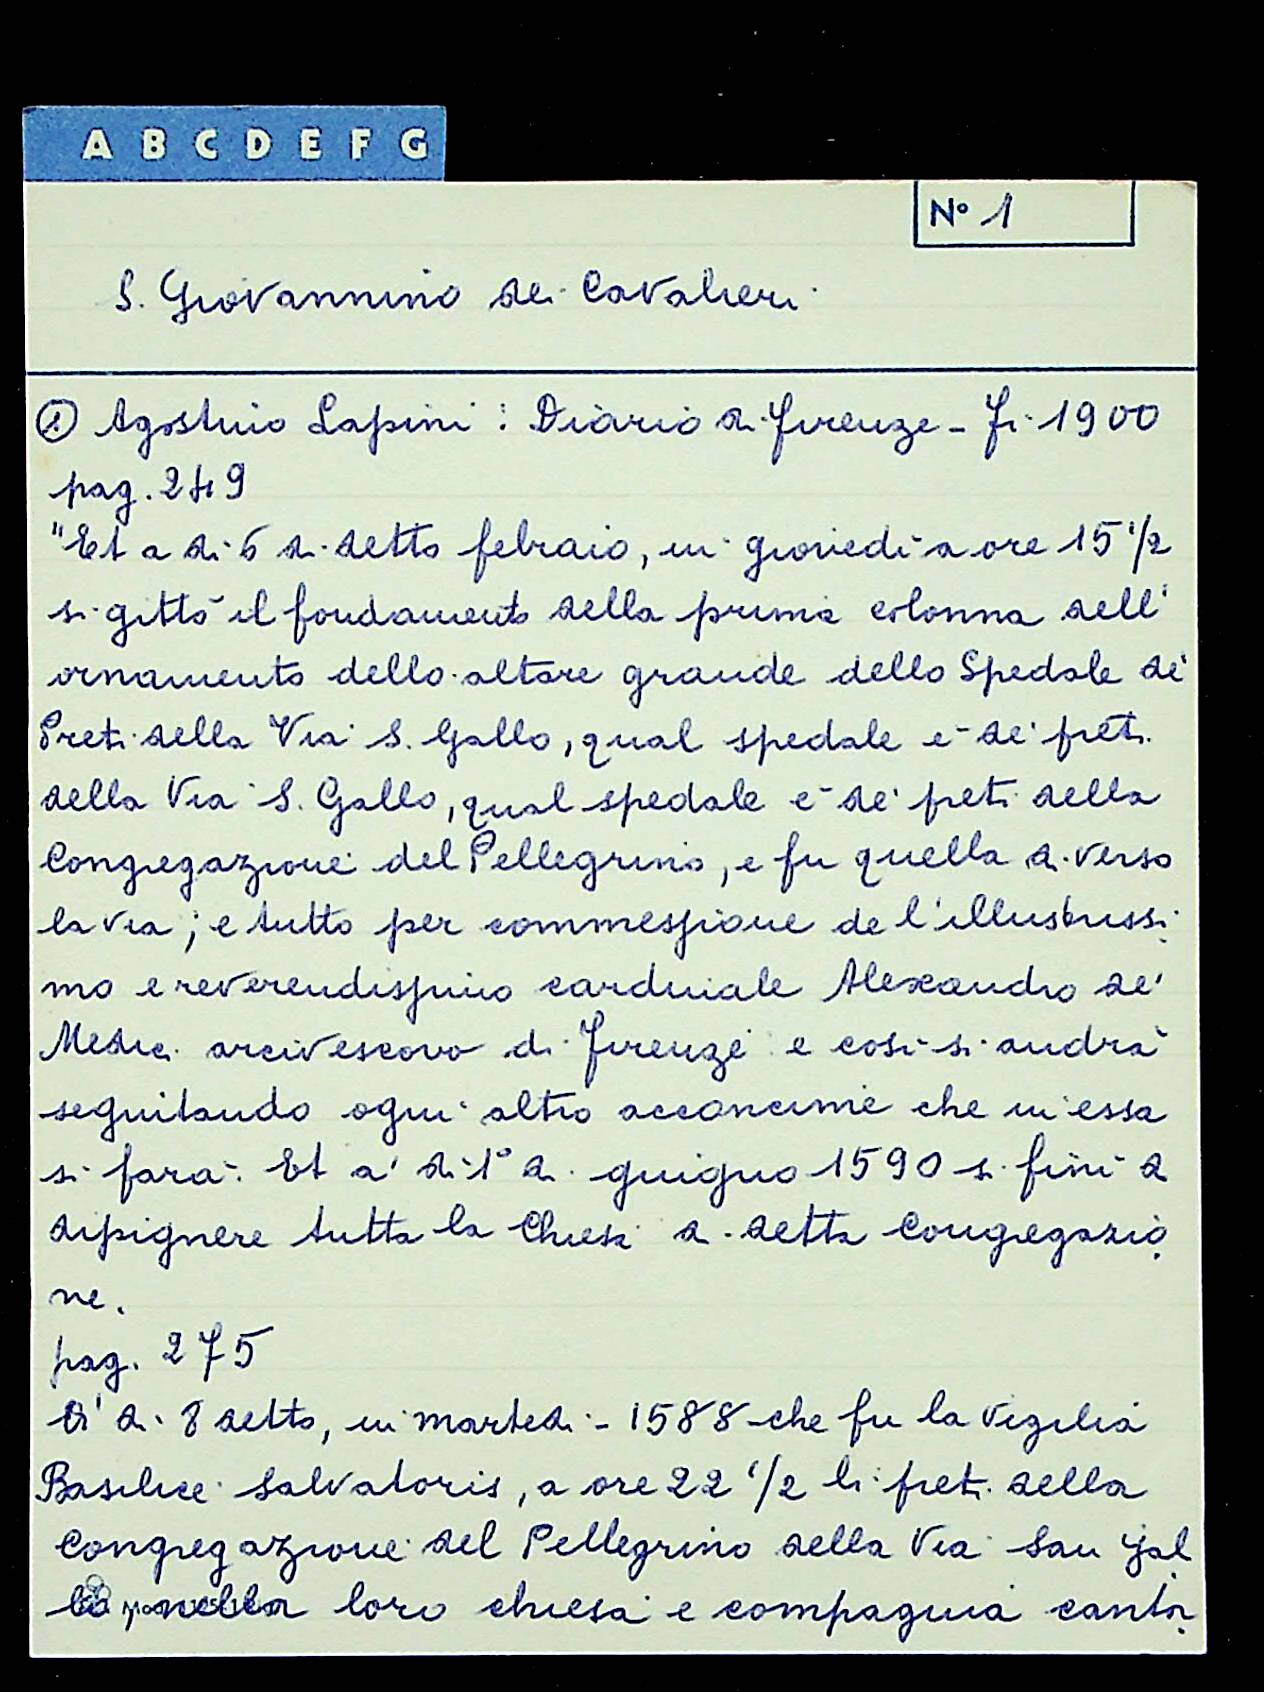 A B C D E F G
N° 1
S. Giovannino dei Cavalieri
① Agostino Lapini: Diario di Firenze - Fi 1900
pag. 249
"Et a di 6 di detto febraio, in giovedì a ore 15 1/2
si gittò il fondamento della prima colonna dell'
ornamento dello altare grande dello Spedale de'
Preti della Via S. Gallo, qual spedale è de' preti
della Via S. Gallo, qual spedale è de' preti della
Congregazione del Pellegrino, e fu quella di verso
la via; e tutto per commessione de l'illustrissi
mo e reverendissimo cardinale Alexandro de'
Medici arcivescovo di Firenze e così si andrà
seguitando ogni altro acconcime che in essa
si farà. Et a' di 1° di giugno 1590 si finì di
dipignere tutta la Chiesa di detta Congregazio
ne.
pag. 275
A' di 8 detto, in martedì - 1588 - che fu la vigilia
Basilice Salvatoris, a ore 22 1/2 li preti della
Congregazione del Pellegrino della Via San Gal
lo nella loro chiesa e compagnia canta